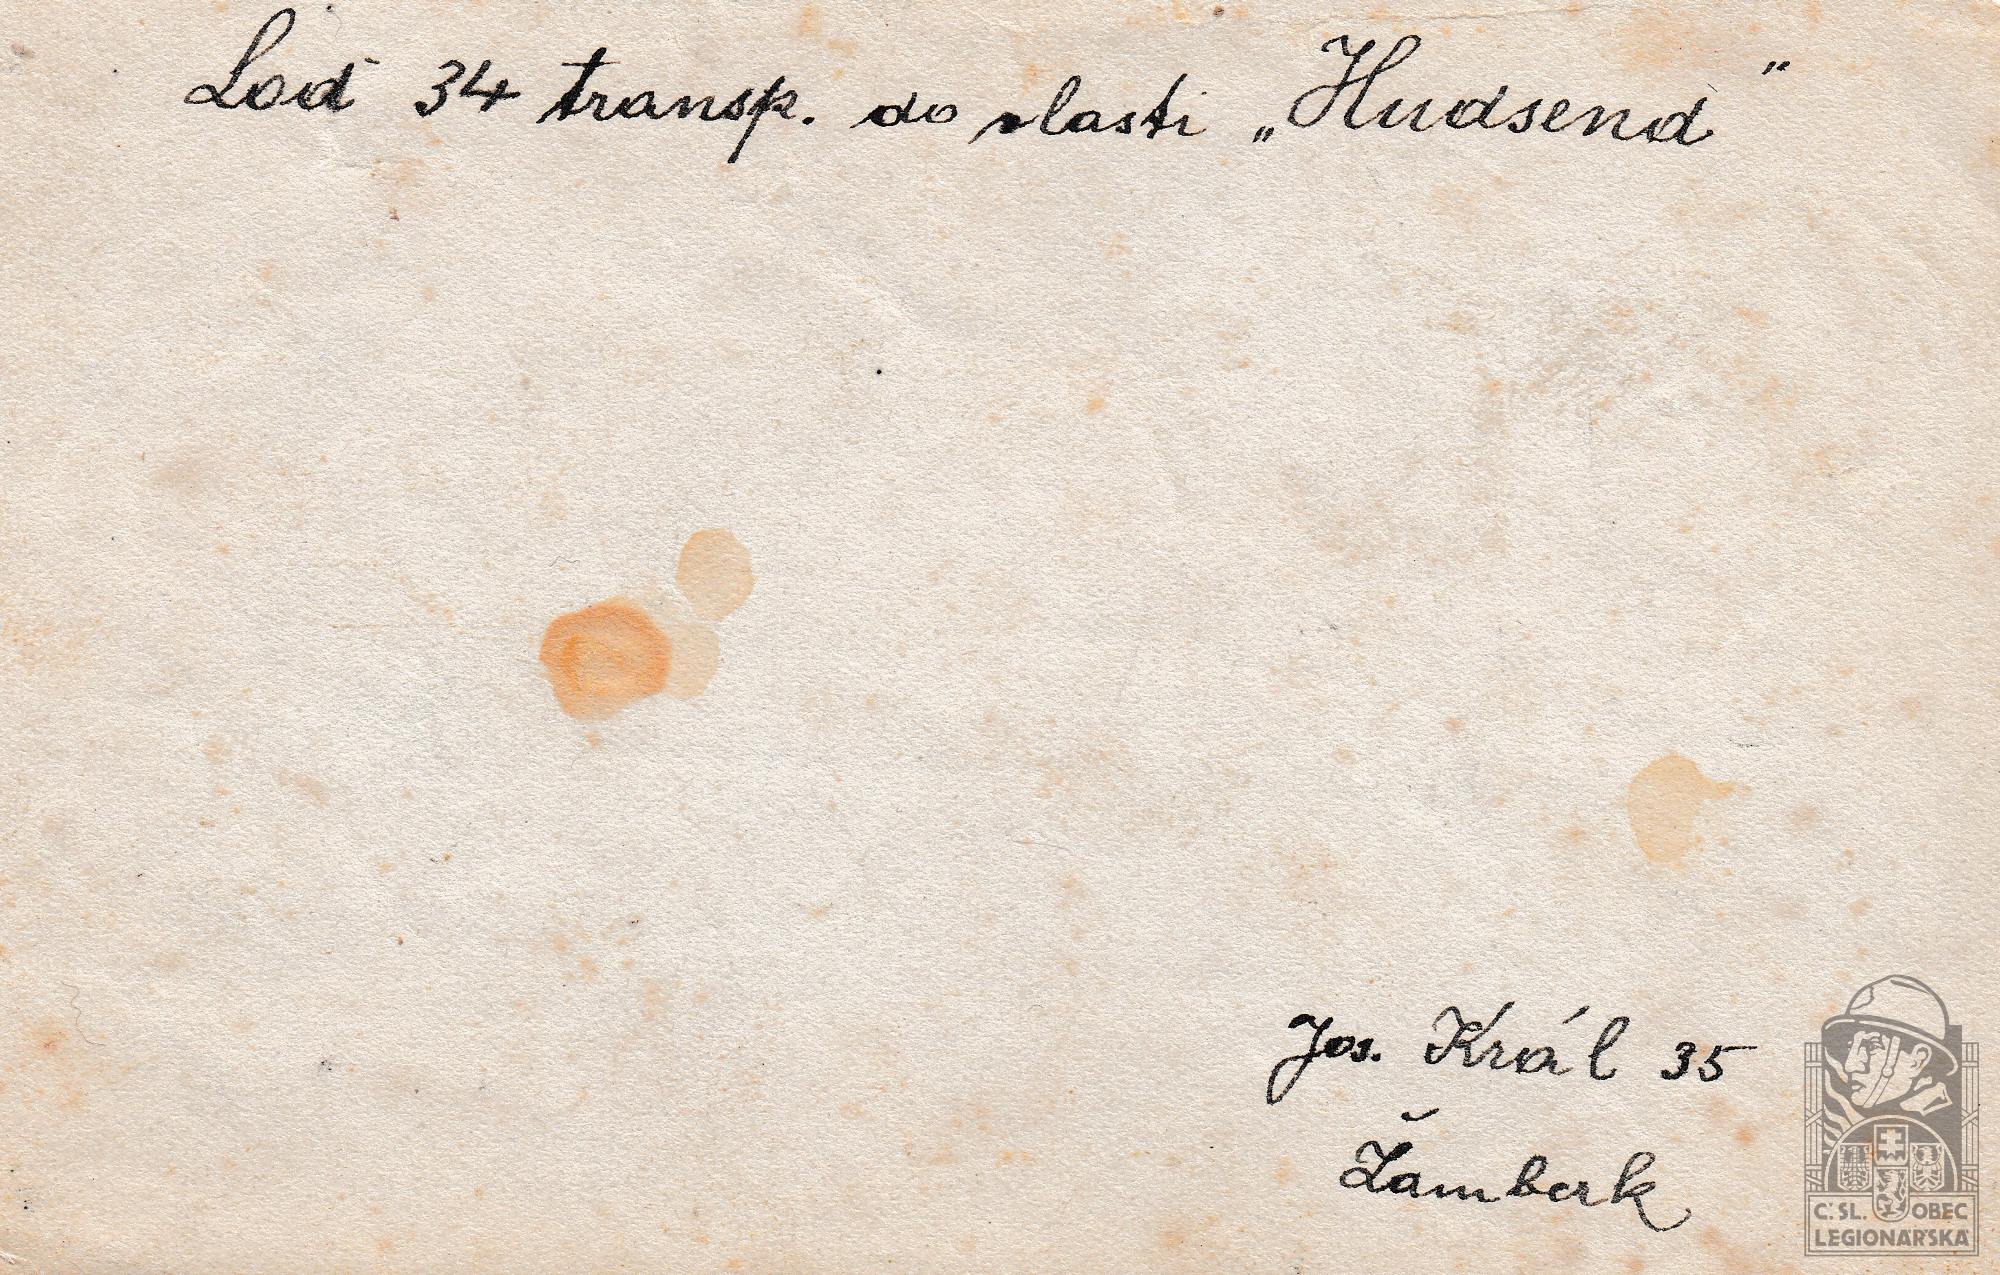 Loď 34 transp. do vlasti „Hudsend"
Jos. Král 35
Žamberk
Č. SL. OBEC
LEGIONÁŘSKÁ